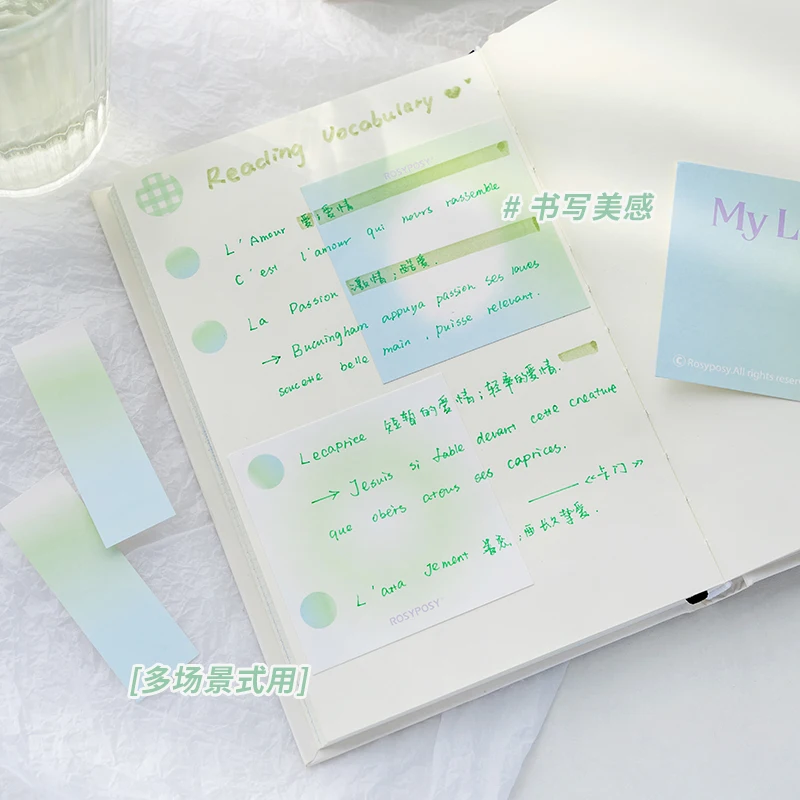 Reading Vocabulary
ROSYPOSY
L'Amour 爱;爱情
C'est l'amour qui nours rassemble
# 书写美感
My L
La Passion 激情;酷爱.
→ Bucuingham appuya passion ses loues
soucette belle main , puisse relevant.
© Rosyposy.All rights reser
Lecaprice 短暂的爱情;轻率的爱情.
→ Jesuis si fable devant cette creature
que obeirs atous ses caprices.
——《卡门》
L'atta Jement
ROSYPOSY
[多场景式用]